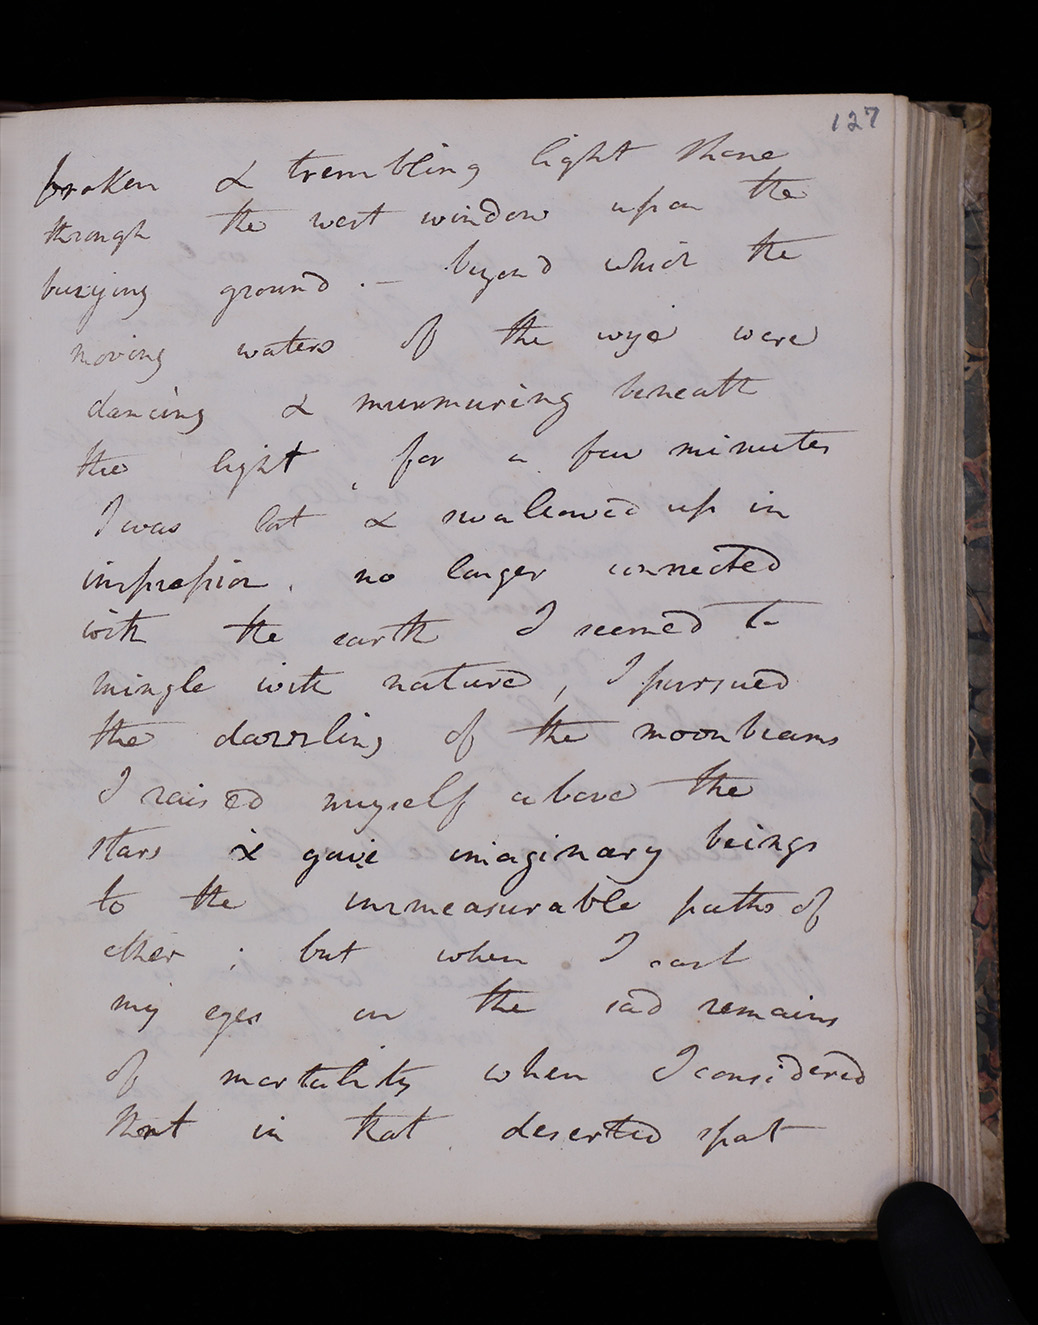 127
broken & trembling light shone
through the west window upon the
burying ground. – beyond which the
moving waters of the wye were
dancing & murmuring beneath
the light, for a few minutes
I was lost & swallowed up in
impression. no longer connected
with the earth I seemed to
mingle with nature, I pursued
the dazzling of the moonbeams
I raised myself above the
stars & gave imaginary beings
to the immeasurable paths of
ether; but when I cast
my eyes on the sad remains
of mortality when I considered
that in that deserted spot